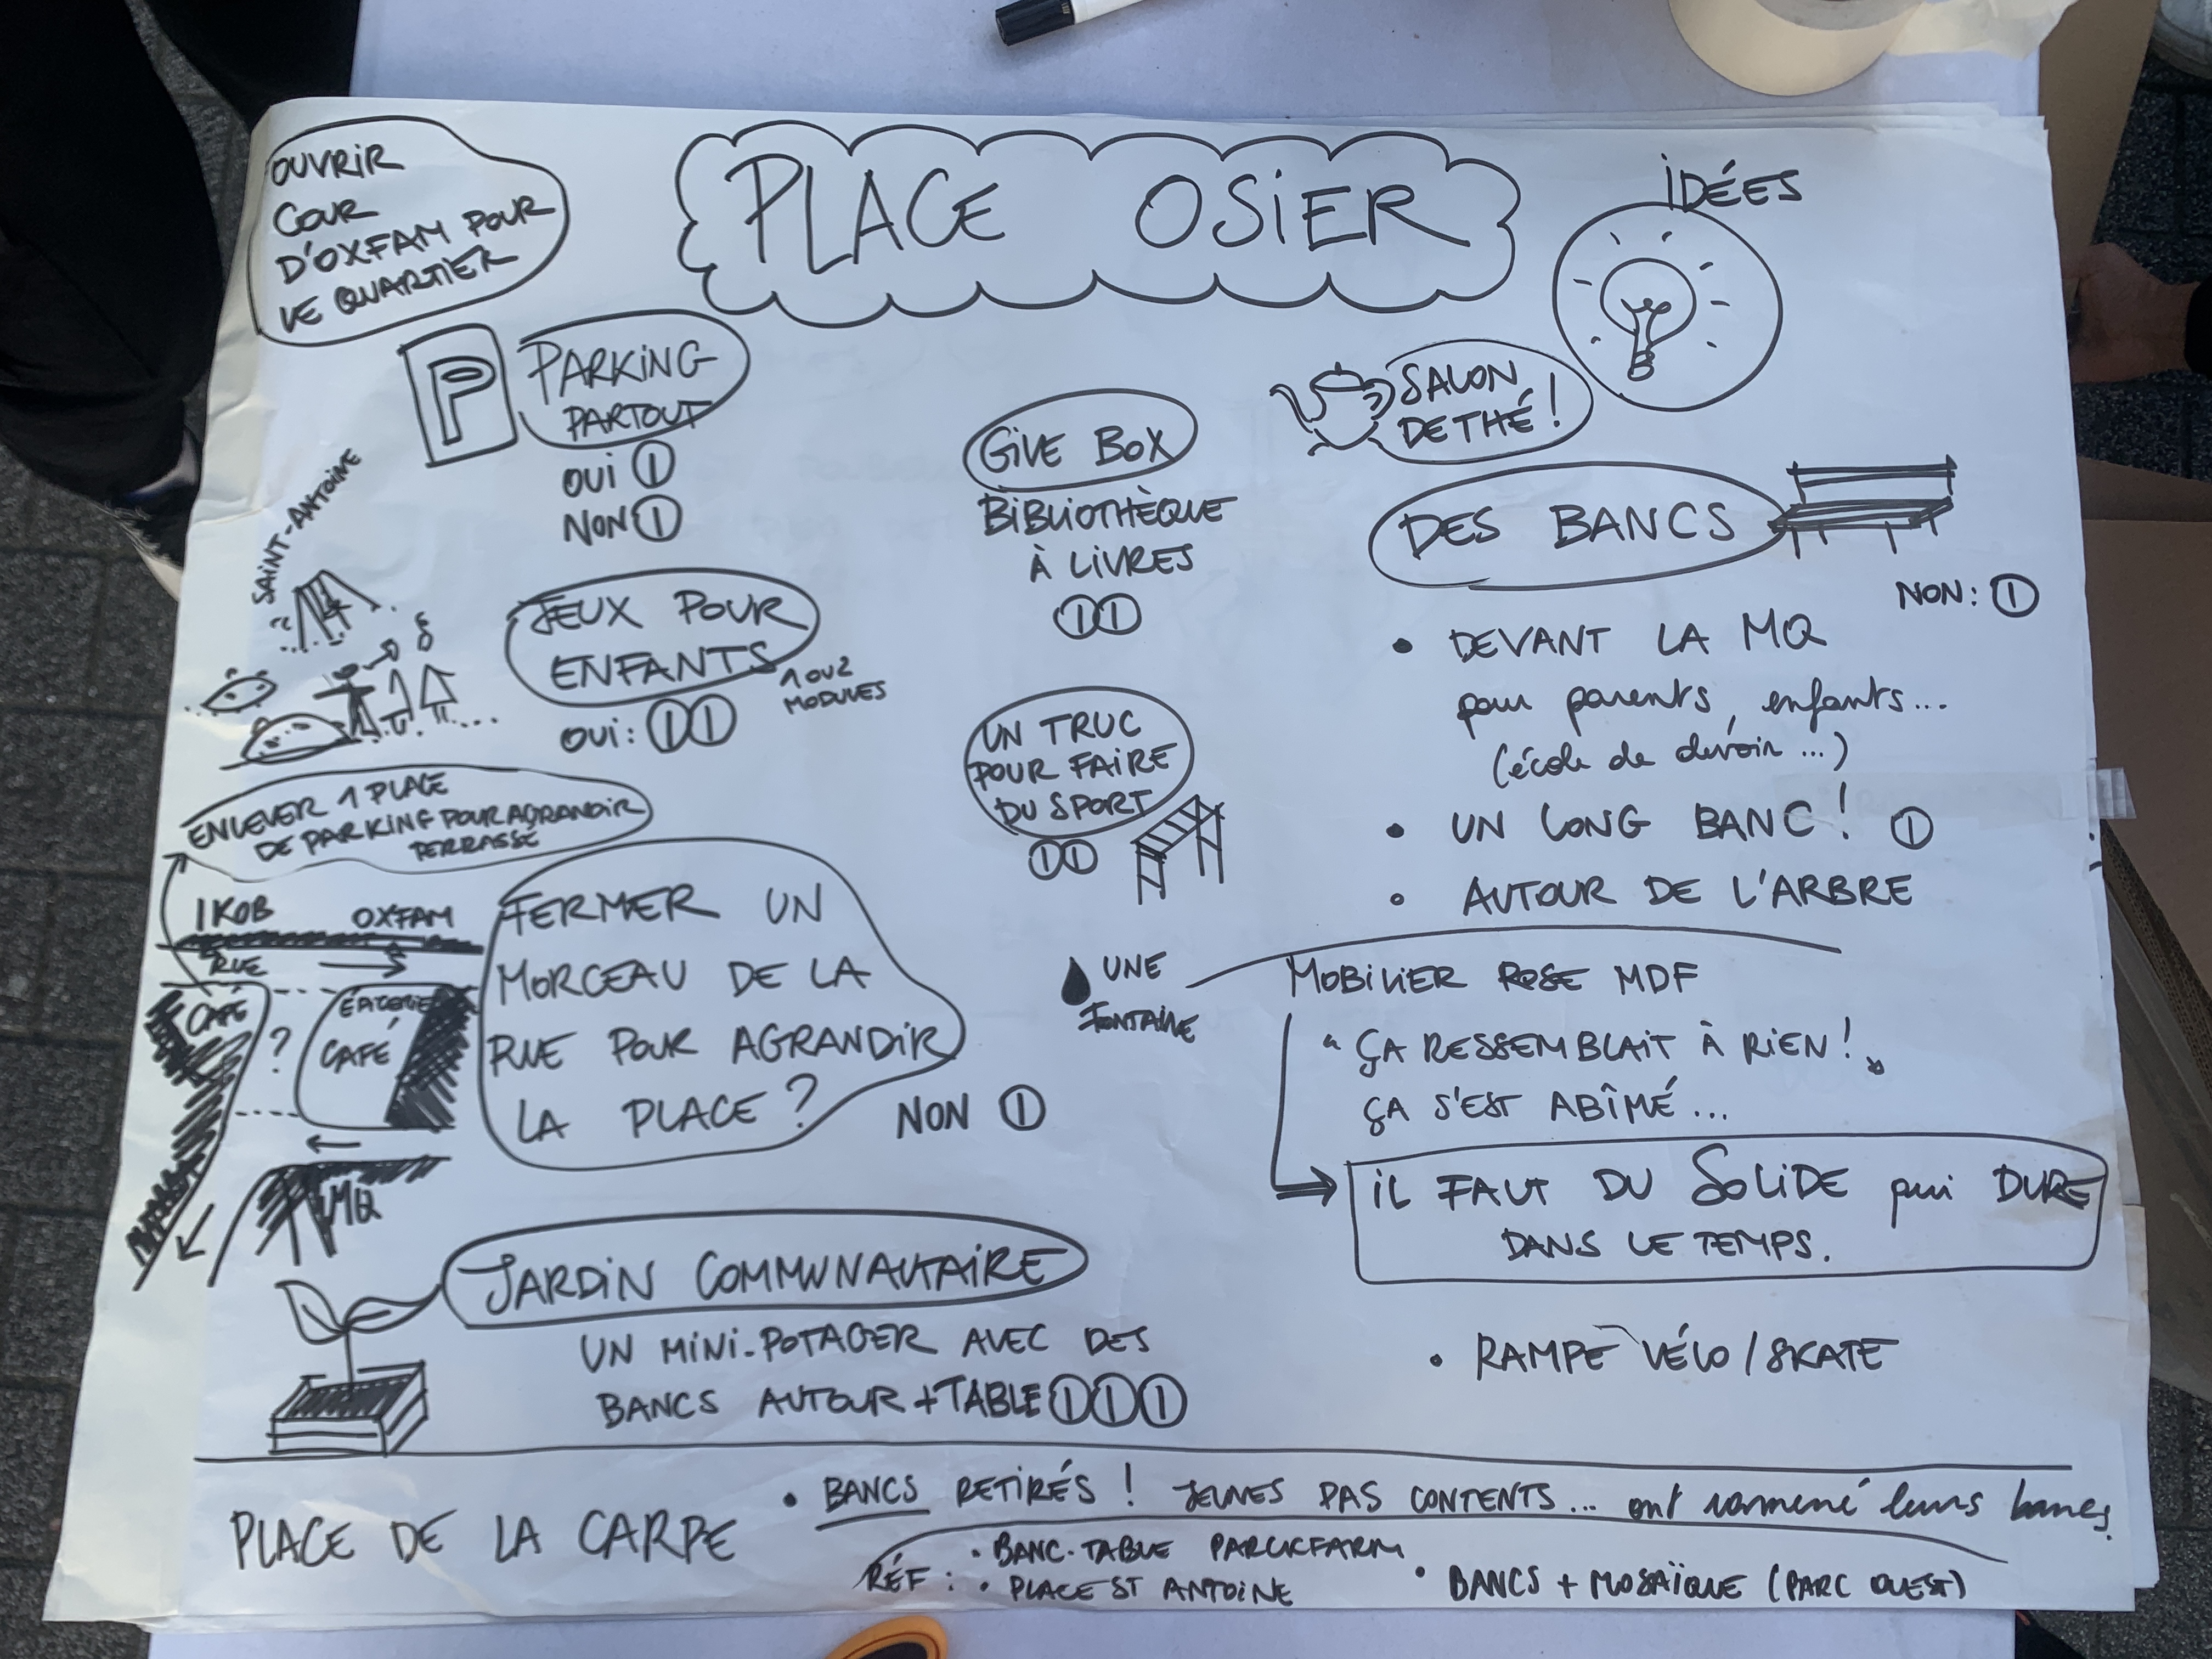 OUVRIR
COUR
D'OXFAM POUR
LE QUARTIER
PLACE OSIER
IDÉES
P
PARKING
PARTOUT
OUI ①
NON ①
GIVE BOX
BIBLIOTHÈQUE
À LIVRES
①①
SALON
DE THÉ !
DES BANCS
NON : ①
• DEVANT LA MQ
pour parents, enfants...
(école de devoir ...)
• UN LONG BANC ! ①
• AUTOUR DE L'ARBRE
SAINT-ANTOINE
JEUX POUR
ENFANTS
1 OU 2
MODULES
OUI : ①①
UN TRUC
POUR FAIRE
DU SPORT
①①
ENLEVER 1 PLACE
DE PARKING POUR AGRANDIR
TERRASSE
IKOB OXFAM
RUE
CAFÉ
?
ÉPICERIE
CAFÉ
MQ
FERMER UN
MORCEAU DE LA
RUE POUR AGRANDIR
LA PLACE ?
NON ①
UNE
FONTAINE
MOBILIER ROSE MDF
"ÇA RESSEMBLAIT À RIEN !"
ÇA S'EST ABÎMÉ ...
IL FAUT DU SOLIDE qui DURE
DANS LE TEMPS.
JARDIN COMMUNAUTAIRE
UN MINI-POTAGER AVEC DES
BANCS AUTOUR + TABLE ①①①
• RAMPE VÉLO / SKATE
PLACE DE LA CARPE
• BANCS RETIRÉS ! JEUNES PAS CONTENTS... ont ramené leurs bancs.
RÉF : • BANC-TABLE PARCKFARM
• PLACE ST ANTOINE
• BANCS + MOSAÏQUE (PARC OUEST)